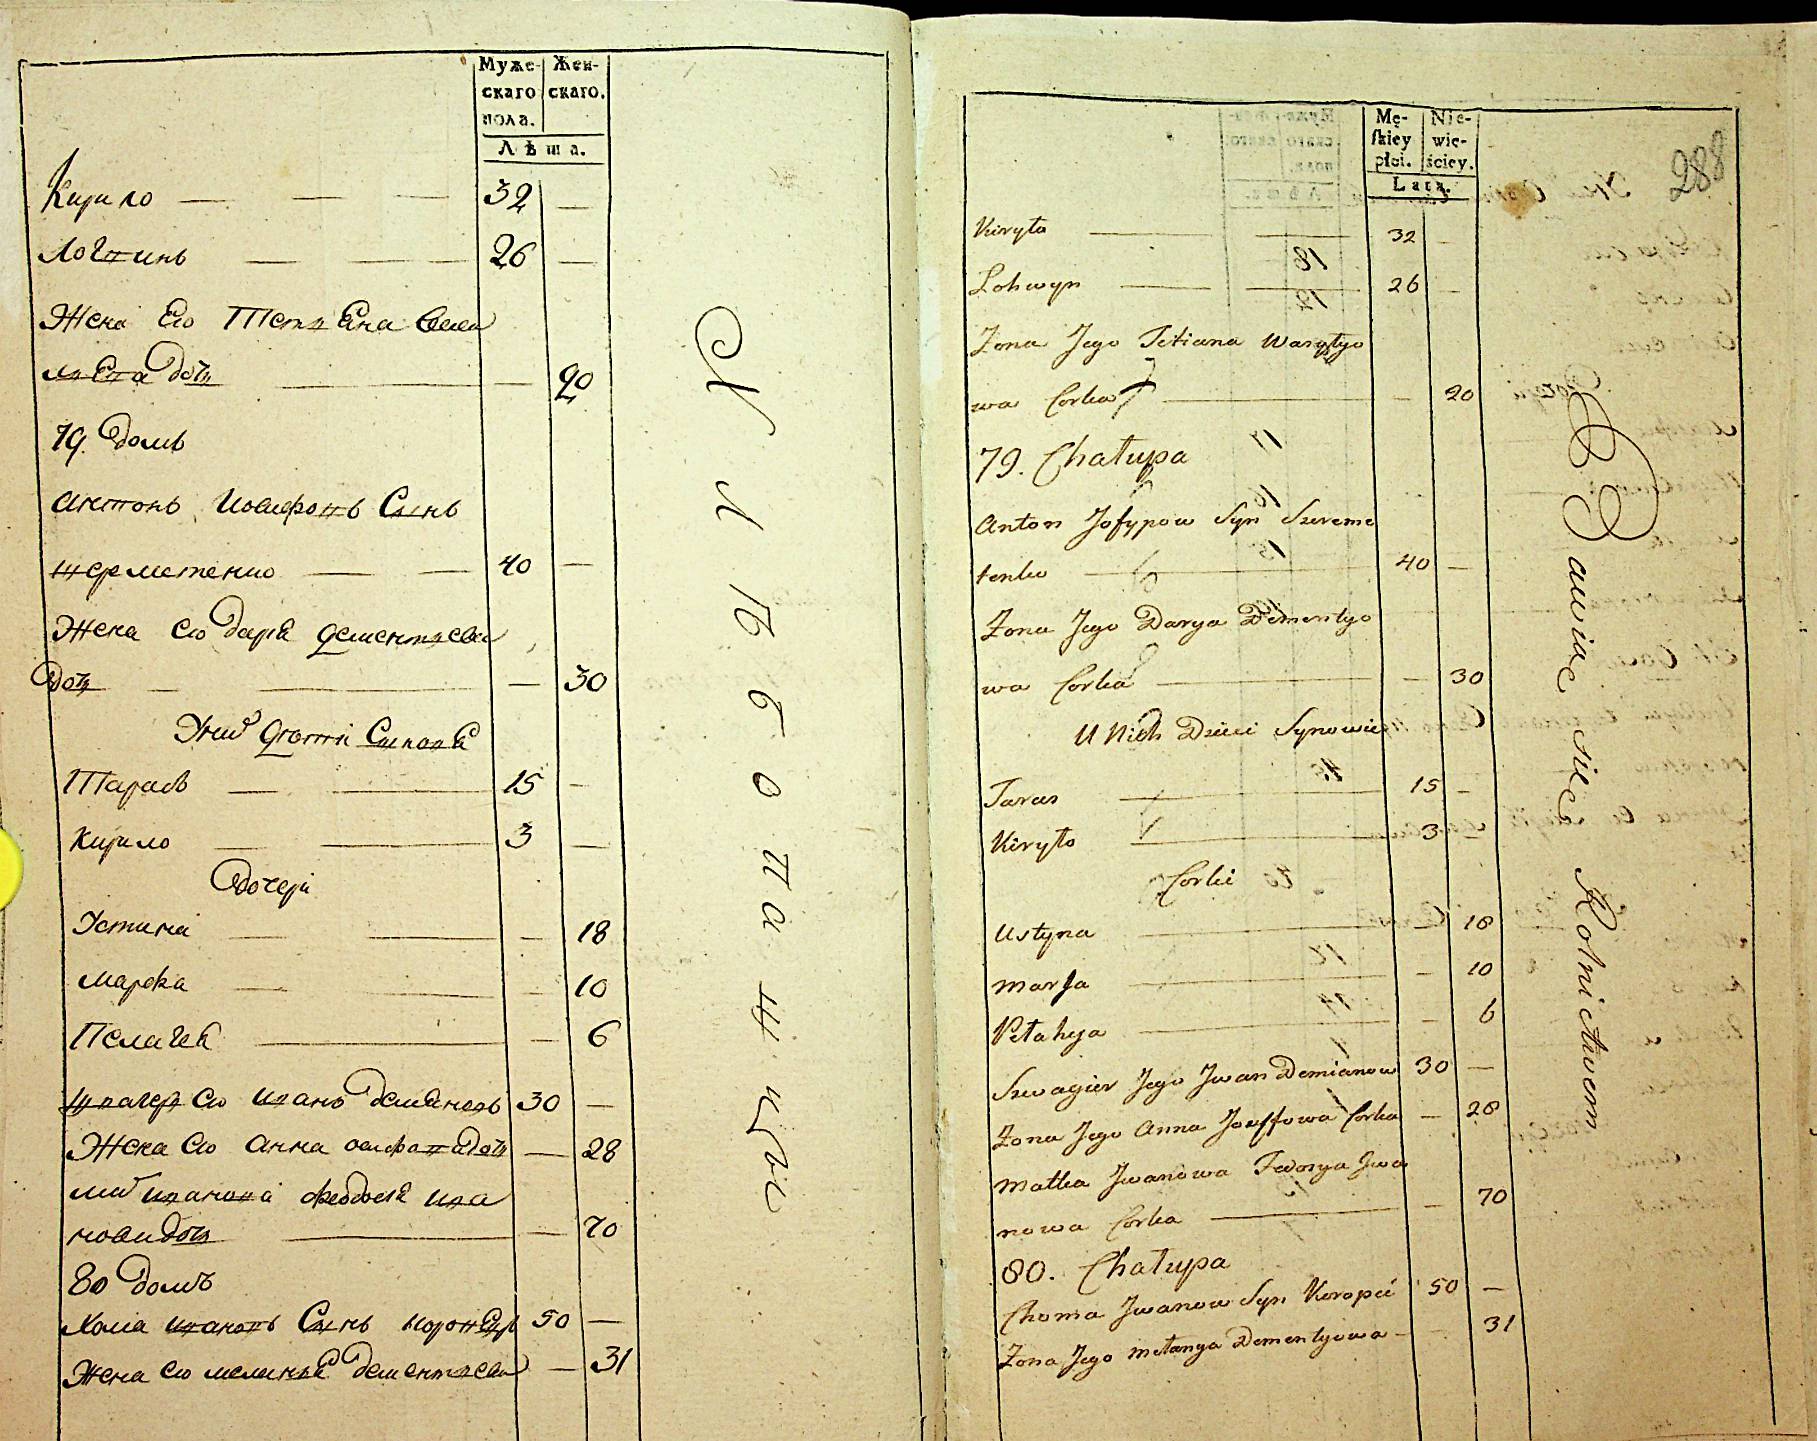 Муже-
скаго
пола.
Жен-
скаго.
Лѣта.
Кирило — — — 32 —
Логвинъ — — — 26 —
Жена Его Тетяна Васи
— 20
79. Домъ
Антонъ Иосифовъ Сынъ
Шереметенко — — 40 —
Жена его Дарія Дементиева
дочь — — — 30
У них Дети Сыновя
Тарасъ — — 15 —
Кирило — — 3 —
Дочери
Устина — — — 18
Марѳа — — — 10
Пелагея — — 6
Швагеръ его Иванъ Демяновъ 30 —
Жена его Анна Осифова дочь — 28
Иванова Феодосія Ива
нова дочь — — 70
80 Домъ
Хома Ивановъ Сынъ 50 —
Жена его Меланья Дементиева — 31
Хлѣбопашцы
288
Mę-
skiey
płci.
Nie-
wie-
ściey.
Lata.
Kiryło — — 32 —
Lohwyn — — 26 —
Zona Jego Tetiana
wa Corka — — 20
79. Chałupa
Anton Jofypow Syn Szereme
tenko — 40 —
Zona Jego Darya Dementyo
wa Corka — — 30
U Nich Dzieci Synowie
Taras — 15 —
Kiryło — 3 —
Corki
Ustyna — — 18
Marfa — — 10
Pełahya — — 6
Szwagier Jego Jwan Demianow 30 —
Zona Jego Anna Jozeffowa Corka — 28
Matka Jwanowa Fedosya Jwa
nowa Corka — — 70
80. Chałupa
Choma Jwanow Syn Koropié 50 —
Zona Jego Mełanya Dementyowa — — 31
Bawiąc się Rolnictwem